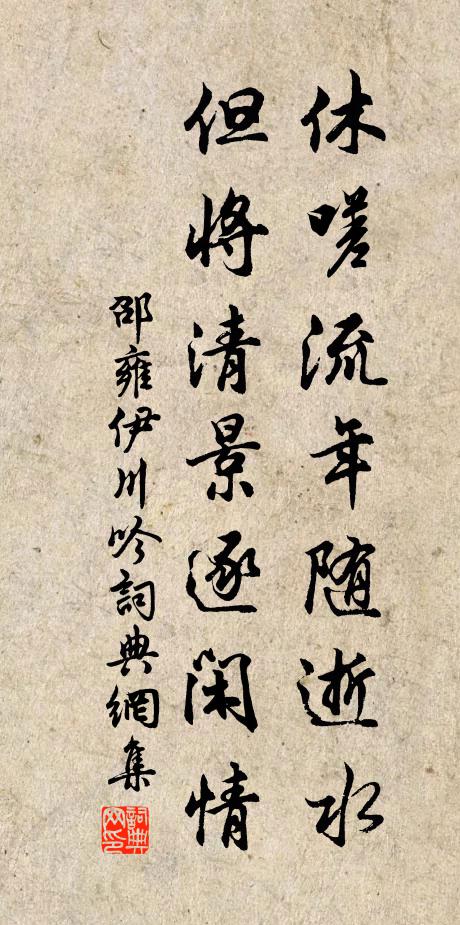 休嗟流年随逝水
但将清景逐闲情
邵雍伊川吟詞典網集
詞典網印